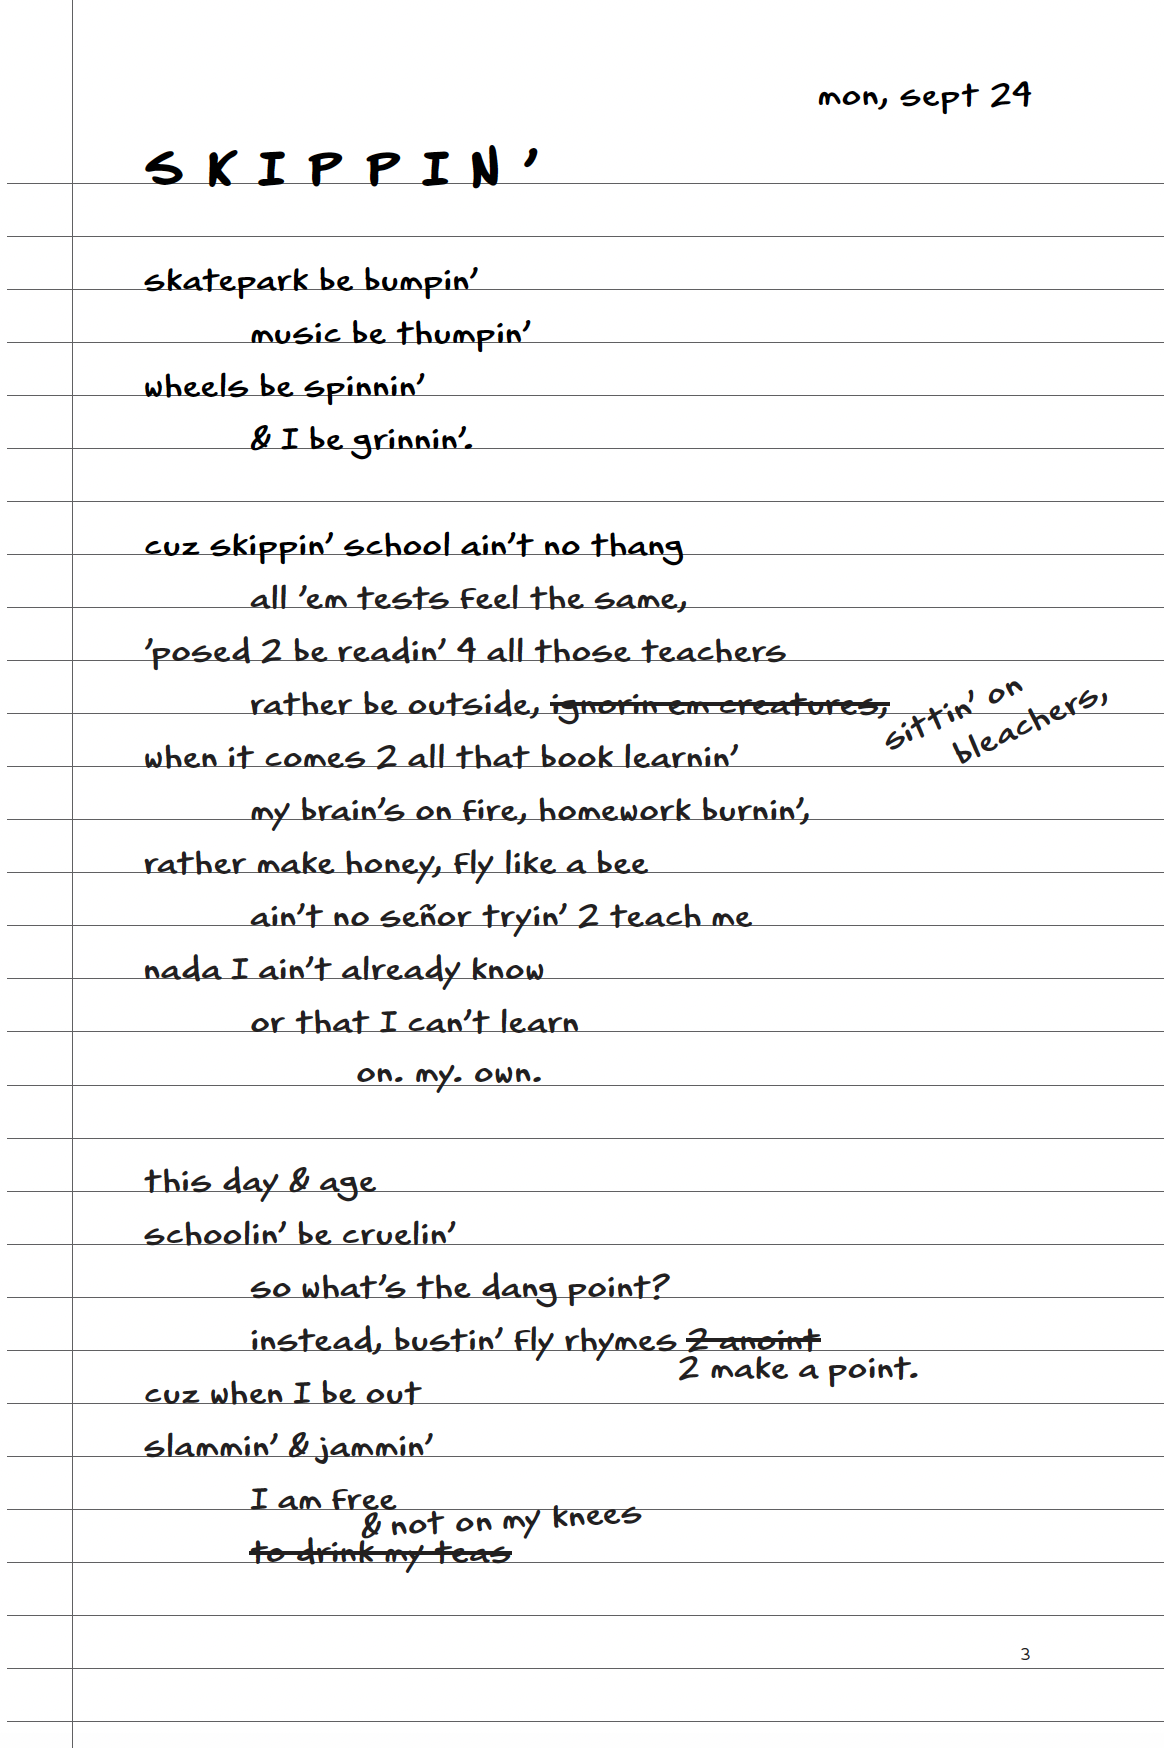 mon, sept 24
SKIPPIN’
skatepark be bumpin’
music be thumpin’
wheels be spinnin’
& I be grinnin’.
cuz skippin’ school ain’t no thang
all ’em tests feel the same,
’posed 2 be readin’ 4 all those teachers
rather be outside, ignorin em creatures,
sittin’ on
bleachers,
when it comes 2 all that book learnin’
my brain’s on fire, homework burnin’,
rather make honey, fly like a bee
ain’t no señor tryin’ 2 teach me
nada I ain’t already know
or that I can’t learn
on. my. own.
this day & age
schoolin’ be cruelin’
so what’s the dang point?
instead, bustin’ fly rhymes 2 anoint
2 make a point.
cuz when I be out
slammin’ & jammin’
I am free
& not on my knees
to drink my teas
3